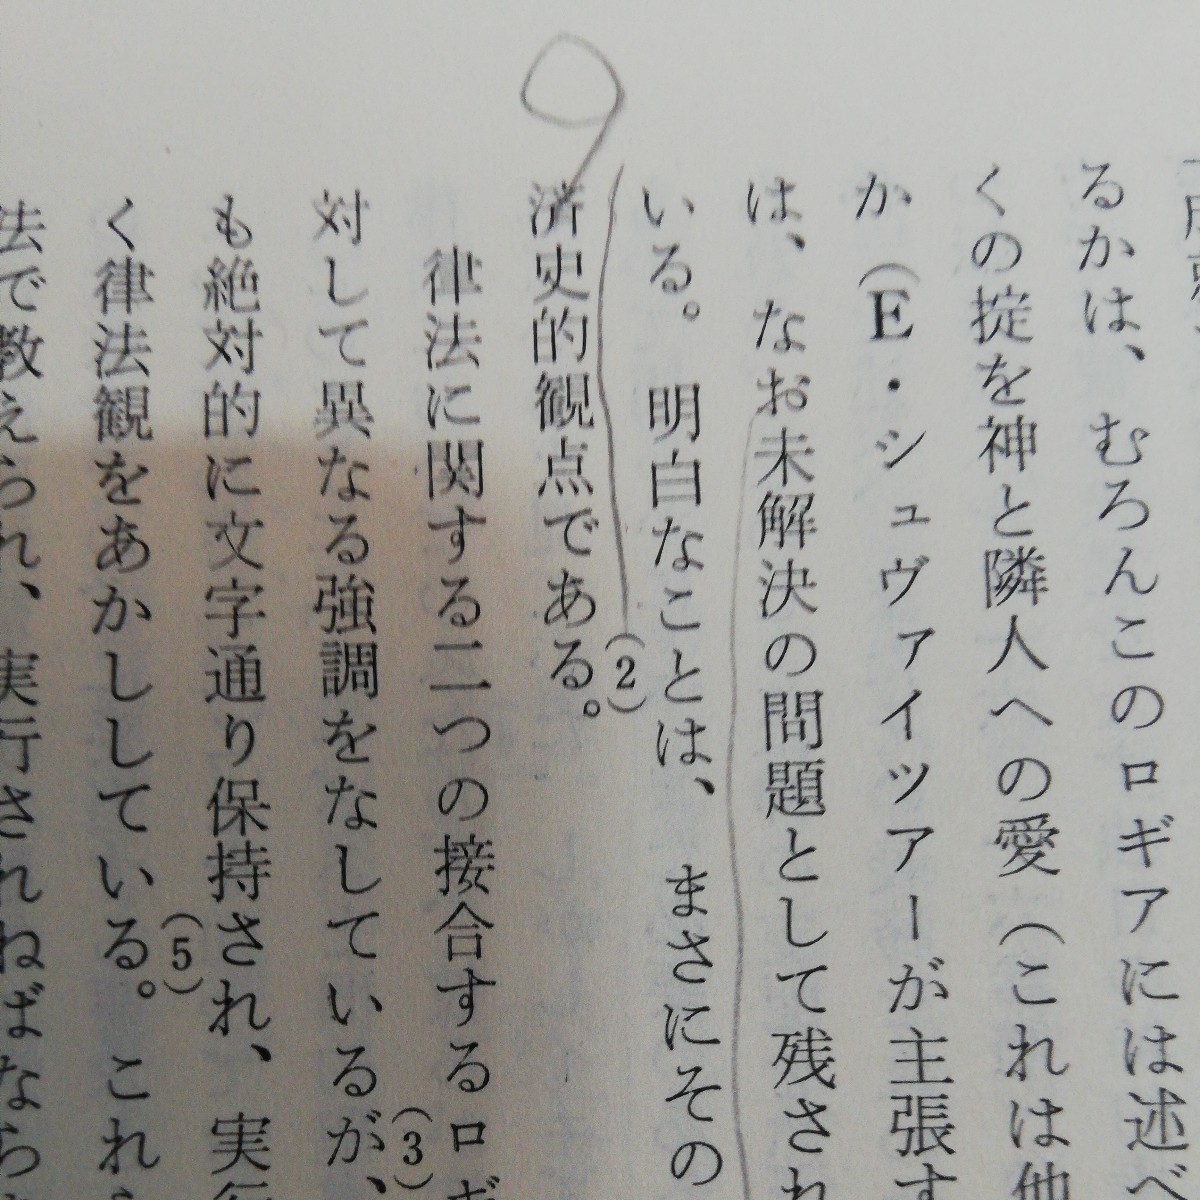 るかは、むろんこのロギアには述べ
くの掟を神と隣人への愛（これは他
か（E・シュヴァイツァーが主張す
は、なお未解決の問題として残され
いる。明白なことは、まさにその
済史的観点である。(2)
律法に関する二つの接合するロギ
対して異なる強調をなしているが、(3)
も絶対的に文字通り保持され、実行
く律法観をあかししている。(5)これ
法で教えられ、実行されねばなら